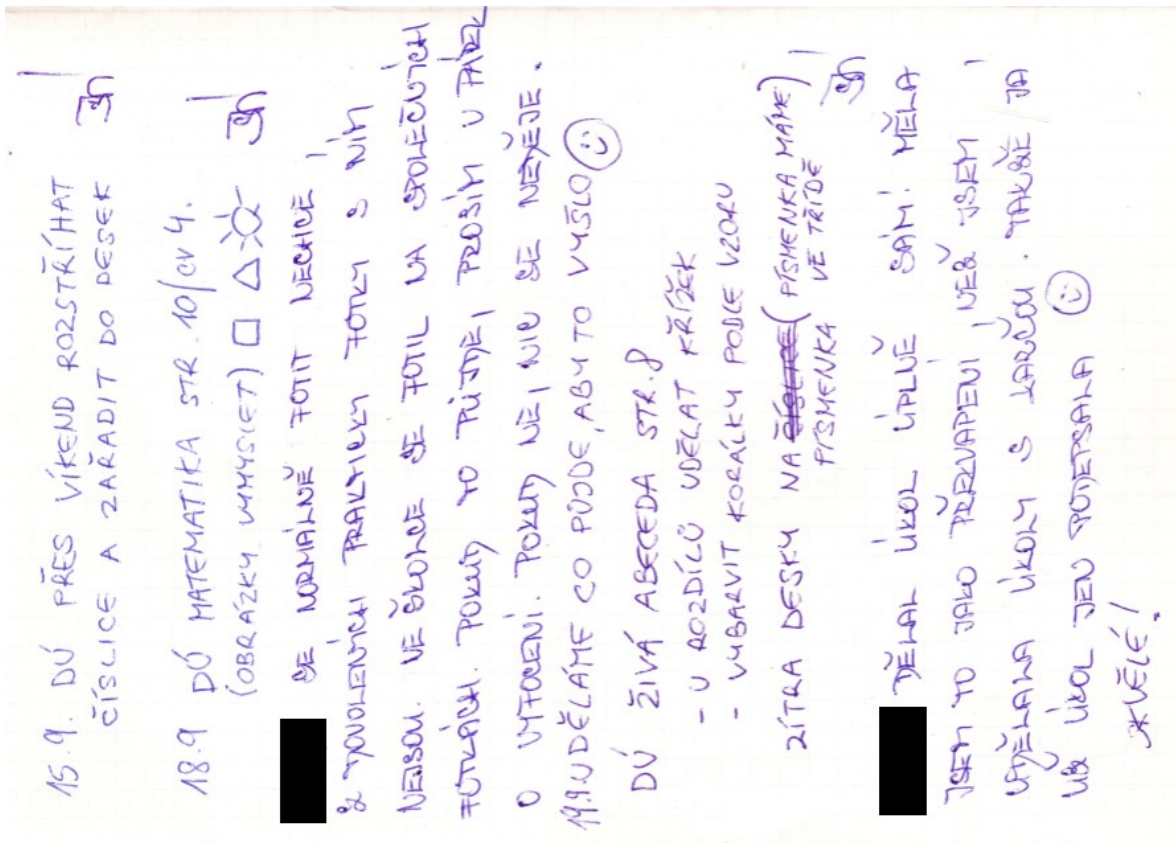 15.9. DÚ PŘES VÍKEND ROZSTŘÍHAT
ČÍSLICE A ZAŘADIT DO DESEK
18.9 DÚ MATEMATIKA STR. 10/CV 4.
(OBRÁZKY VYMYSLET)
SE NORMÁLNĚ FOTIT NECHCE,
Z DOVOLENÝCH PRAKTICKY FOTKY S NÍM
NEJSOU. VE ŠKOLCE SE FOTIL NA SPOLEČNÝCH
FOTKÁCH. POKUD TO PŮJDE, PROSÍM V PÁTEK
O VYFOCENÍ. POKUD NE, NIC SE NEDĚJE.
19.9. UDĚLÁME CO PŮJDE, ABY TO VYŠLO
DÚ ŽIVÁ ABECEDA STR. 8
- U ROZDÍLŮ UDĚLAT KŘÍŽEK
- VYBARVIT KORÁLKY PODLE VZORU
ZÍTRA DESKY NA ČÍSLICE (PÍSMENKA MÁME)
PÍSMENKA VE TŘÍDĚ
DĚLAL ÚKOL ÚPLNĚ SÁM! MĚLA
JSEM TO JAKO PŘEKVAPENÍ, NEŽ JSEM
UDĚLALA ÚKOLY S . TAKŽE JÁ
UŽ ÚKOL JEN PODEPSALA
SKVĚLÉ!